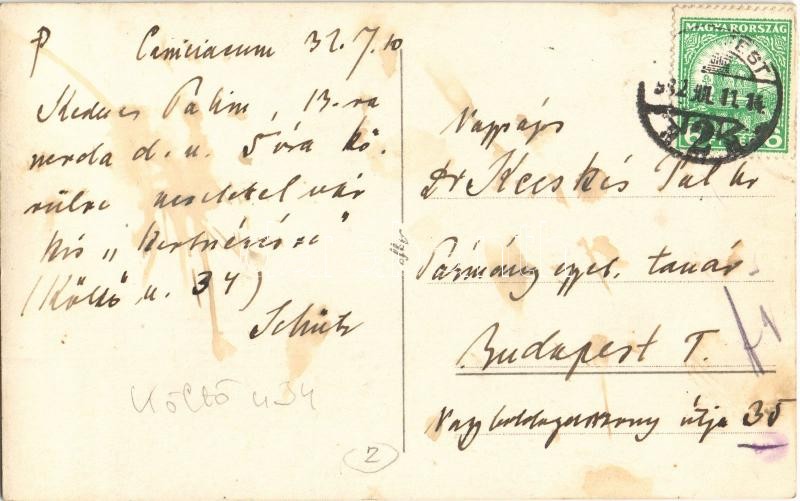 P Caniciacum 32. 7. 10
Kedves Palim, 13-ra
szerda d. u. 5 óra kö-
rülre szeretettel vár
kis „kertnézésre”
(Költő u. 34)
Schütz
Költő u 34
2
MAGYARORSZÁG
Nagyságos
Dr Kecskés Pál úr
Pázmány egyet. tanár
Budapest I.
Nagyboldogasszony útja 35